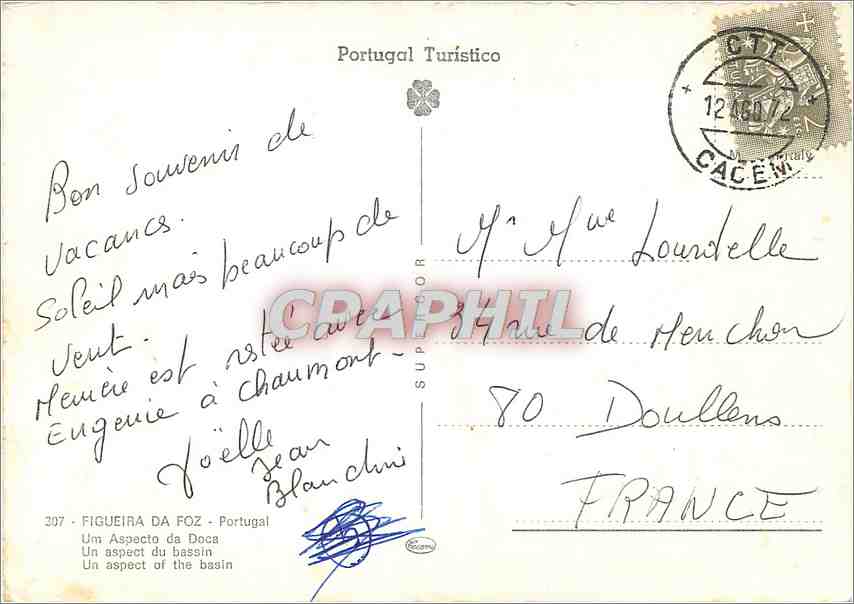 Portugal Turístico
CTT
12 AGO 72
CACEM
Bon souvenir de
vacances.
Soleil mais beaucoup de
vent.
est restée avec
Eugenie à Chaumont-
Joëlle
Jean
Blandine
Mr Mme Lourdelle
34 rue de Menchon
80 Doullens
FRANCE
SUPERCOR
CPARHIL
307 - FIGUEIRA DA FOZ - Portugal
Um Aspecto da Doca
Un aspect du bassin
Un aspect of the basin